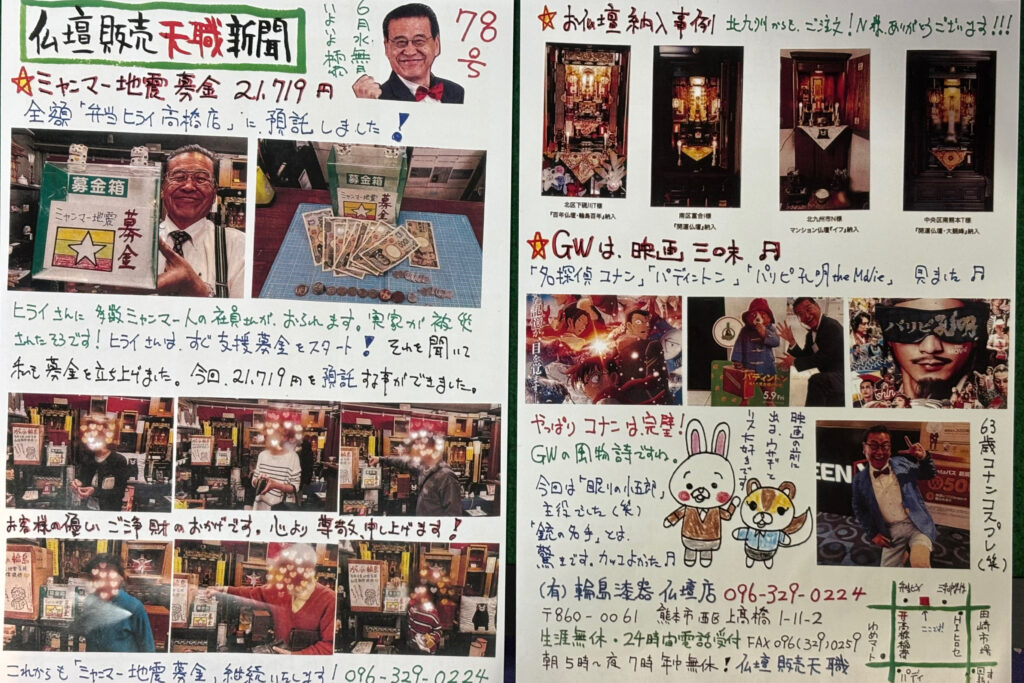 仏壇販売天職新聞
6月水無月
いよいよ梅雨
78号
☆ミャンマー地震募金 21.719円
全額「弁当ヒライ高橋店」に、預託しました!
募金箱
ミャンマー地震
募金
募金箱
ミャンマー地震
募金
ヒライさんに多数ミャンマー人の社員さんが、おられます。実家が被災
されたそうです!ヒライさんは、すぐ支援募金をスタート! それを聞いて
私も募金を立ち上げました。今回、21.719円を預託する事ができました。
お客様の優しいご浄財のおかげです。心より尊敬、申し上げます!
これからも「ミャンマー地震募金」継続いたします! 096-329-0224
☆お仏壇納入事例 北九州からも、ご注文!N様、ありがとうございます!!!
北区下硯川T様
「百年仏壇・輪島百年」納入
南区富合I様
「開運仏壇」納入
北九州市N様
マンション仏壇「イブ」納入
中央区南熊本T様
「開運仏壇・大観峰」納入
☆GWは、映画三昧♬
「名探偵コナン」「パディントン」「パリピ孔明the Movie」 見ました♬
パディントン
5.9 Fri
パリピ孔明
やっぱりコナンは完璧!
GWの風物詩ですね。
今回は「眠りの小五郎」
主役でした(笑)
「銃の名手」とは、
驚きです。カッコよかった♬
映画の前に
出る、ウサギと
リス大好きです
63歳コナンコスプレ(笑)
50
(有)輪島漆器仏壇店 096-329-0224
〒860-0061 熊本市西区上高橋1-11-2
生涯無休・24時間電話受付 FAX096(329)0259
朝5時〜夜7時年中無休!仏壇販売天職
ここです!
高橋稲荷
ゆめマート
HIヒロセ
田崎市場